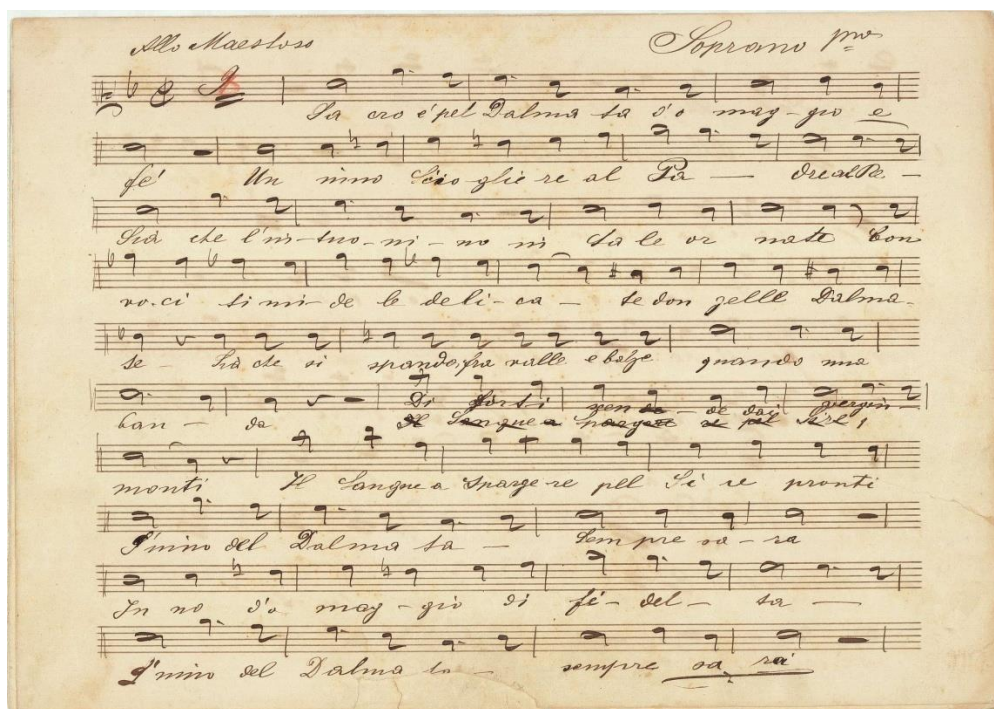 Allo Maestoso Soprano pmo
Sa cro è pel Dalma ta d'o mag-gio e
fè Un inno Scio glie re al Pa — dre al Re —
Già che l'in-tuo-ni-no in ta le or nate Con
vo-ci ti mi-de le deli-ca — te don zelle Dalma-
te — Già che si spando, fra valle e balze quando una
ban — da Di forti scende — de dai gergin-
monti Il Sangue a sparge-re pel Si re pronti
L'inno del Dalma ta — Sem pre sa — rà
In no d'o mag-gio di fe-del-tà —
L'inno del Dalma ta — sempre sa rà